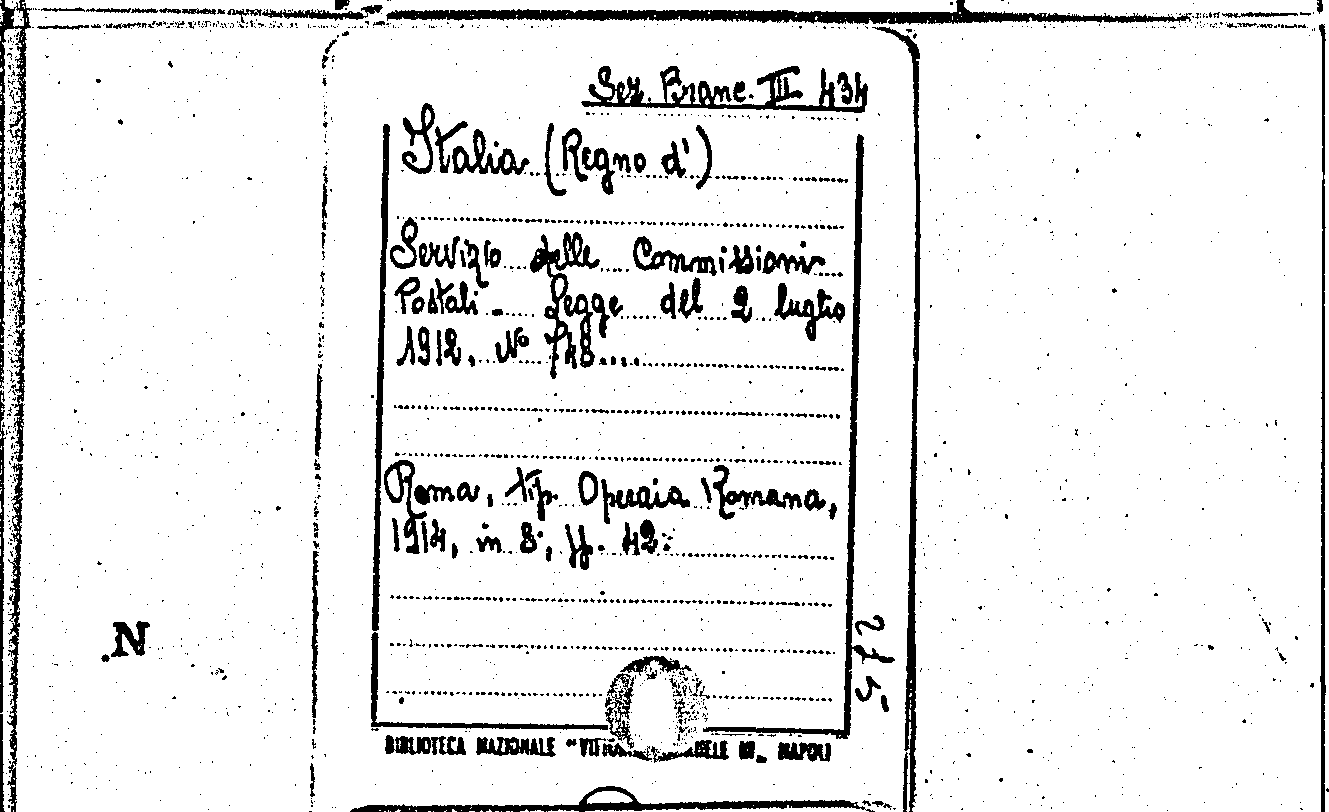 Sez. Branc. III 434
Italia (Regno d')
Servizio delle Commissioni
Postali - Legge del 2 luglio
1912, N° 748....
Roma, tip. Operaia Romana,
1914, in 8°, pp. 42.
275
N
BIBLIOTECA NAZIONALE "VITTORIO EMANUELE III„ NAPOLI